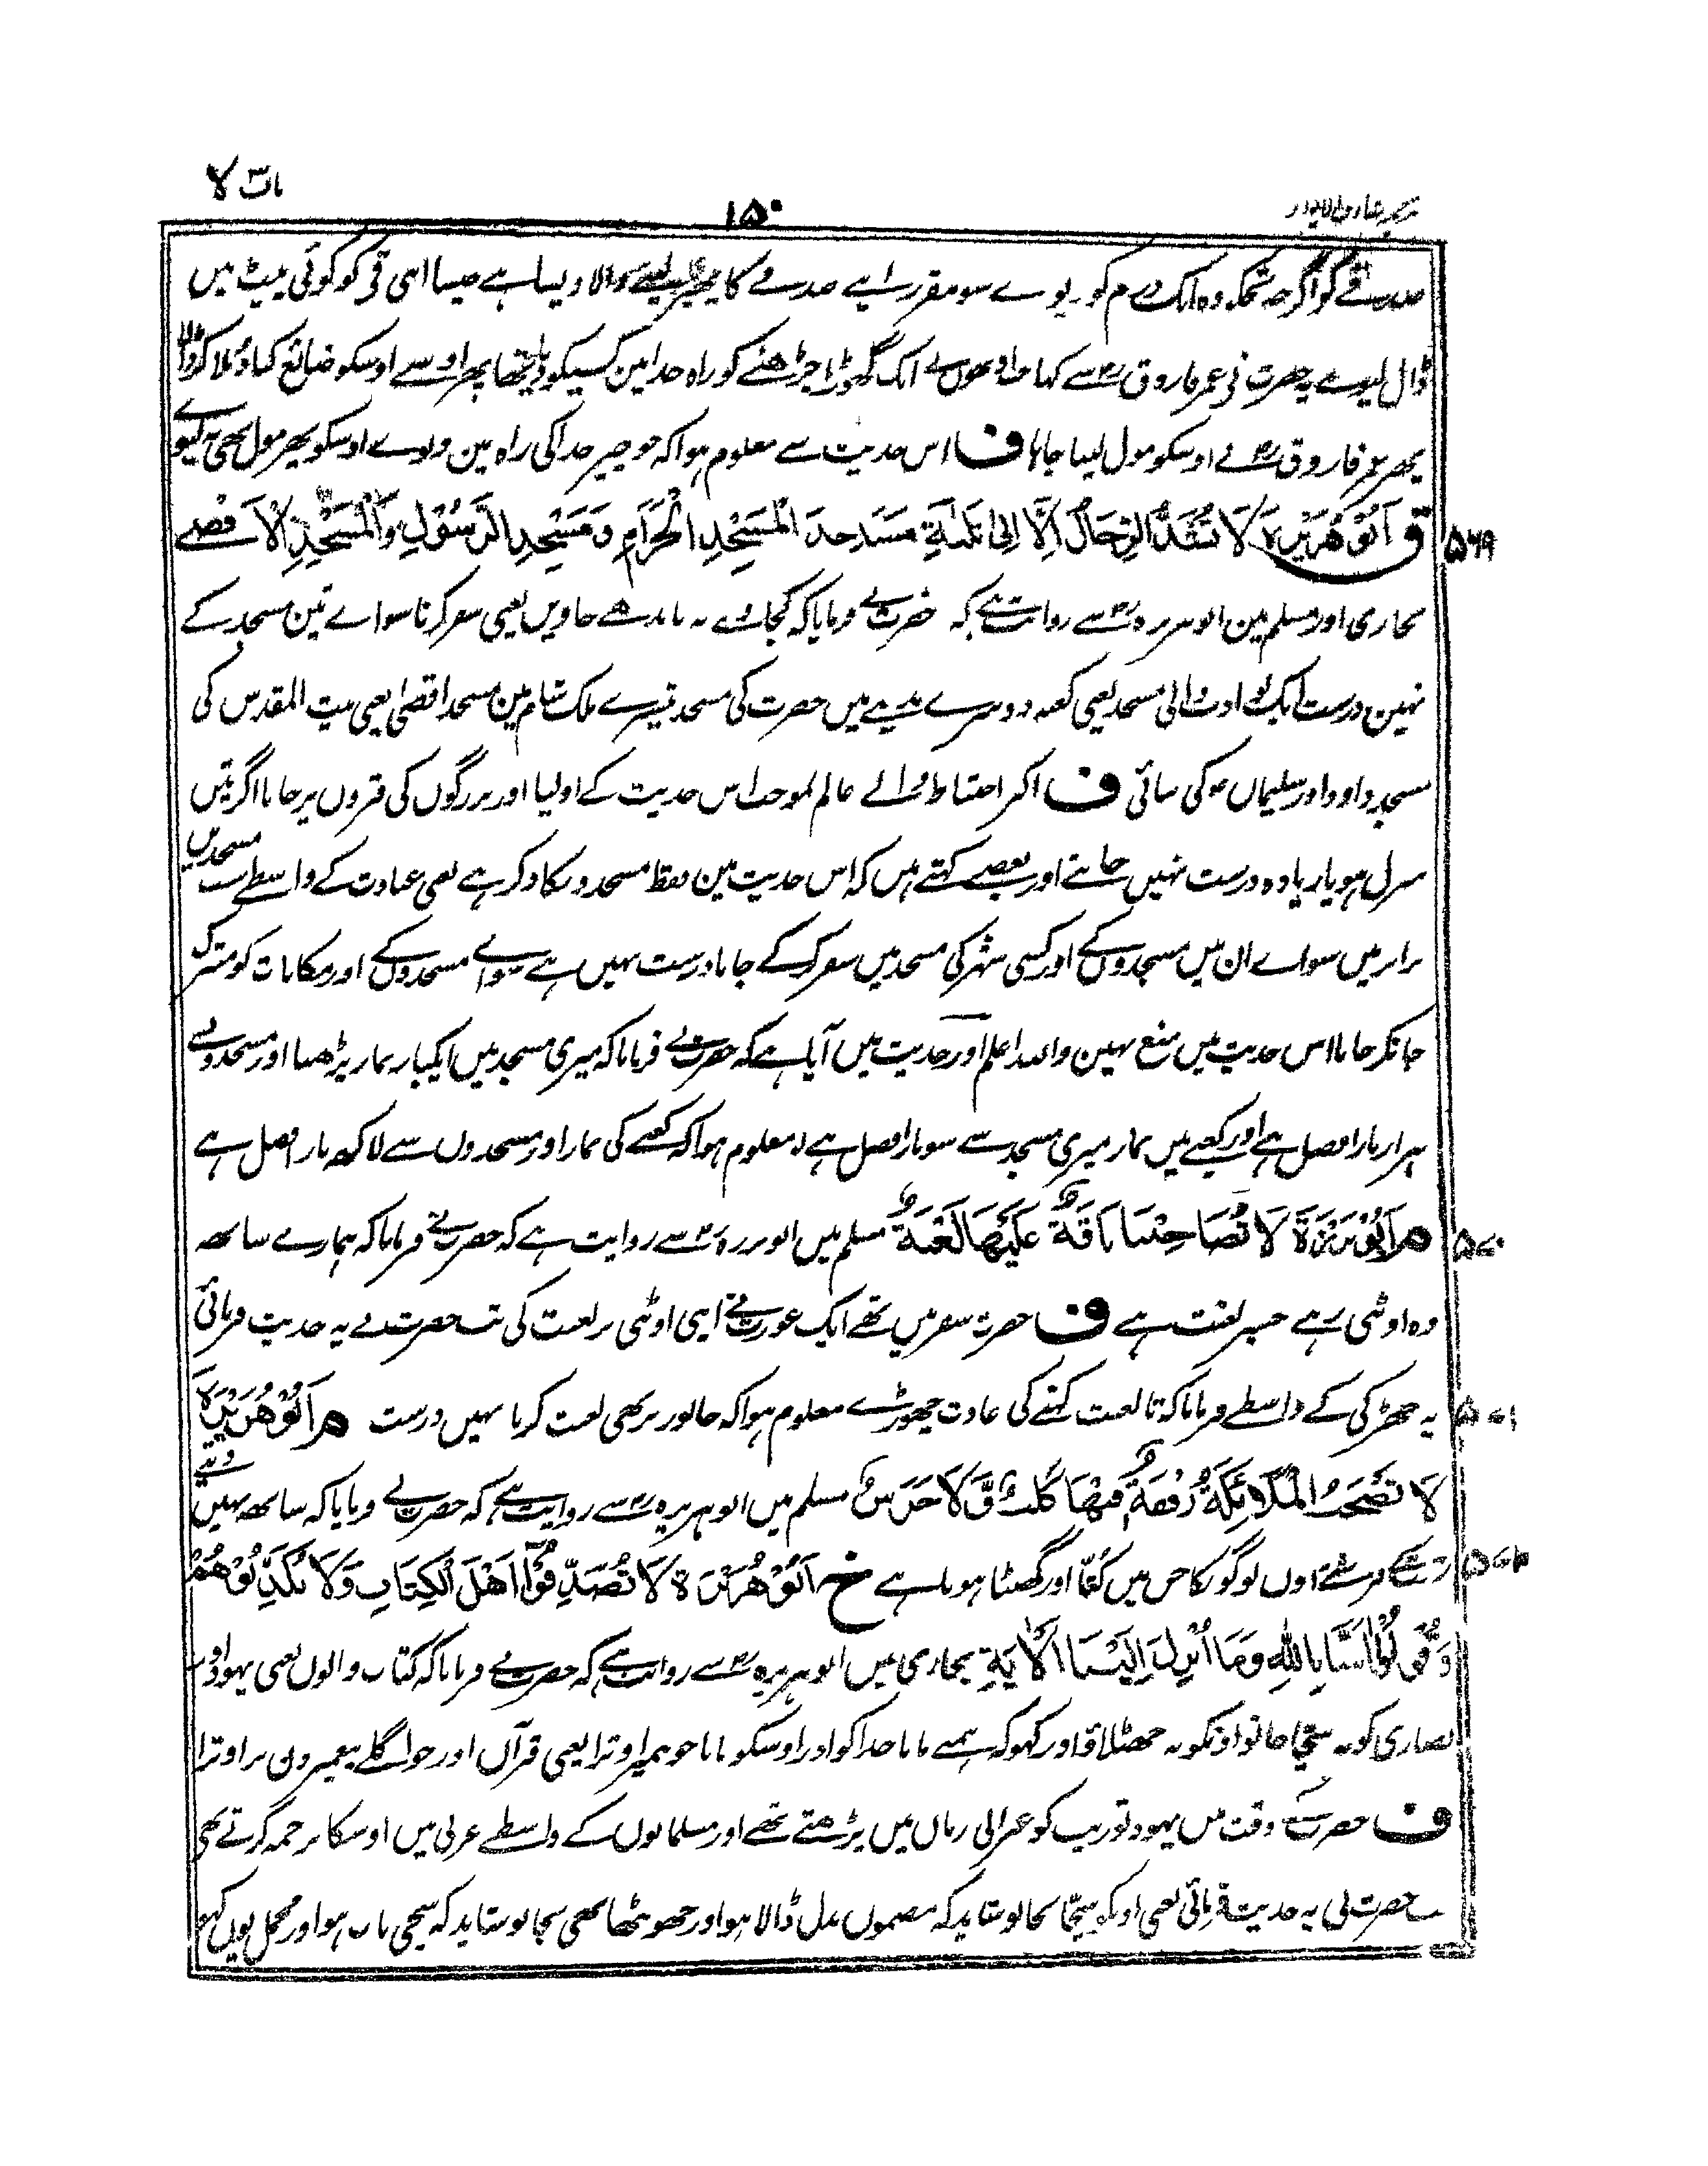 باب ۳ لا
۱۵۰
صدقے کو اگرچہ تجکو وہ ایک درم کو دیوے سو مقرر اپنے صدقے کا پھیر لینے والا ویسا ہے جیسا اپنی قی کو کوئی پیٹ میں
ڈال لیوے یہ حضرت نی عمر فاروق رض سے کہا جب اونھوں نے ایک گھوڑا چڑھنے کو راہ خدا مین کسیکو دیا تھا پھر اوسے اوسکو ضائع کیا دُبلا کر ڈالا
پھر عمر فاروق رض نے اوسکو مول لینا چاہا ف اس حدیث سے معلوم ہوا کہ جو چیز خدا کی راہ مین دیوے اوسکو پھر مول بھی نہ لیوے
۵۶۹ ق اَبُوْ هُرَيْرَةَ لَا تُشَدُّ الرِّحَالُ اِلَّا اِلٰى ثَلٰثَةِ مَسَاجِدَ الْمَسْجِدِ الْحَرَامِ وَمَسْجِدِ الرَّسُوْلِ وَالْمَسْجِدِ الْاَقْصٰى
بخاری اور مسلم مین ابو ہریرہ رض سے روایت ہے کہ حضرت نے فرمایا کہ کجاوے نہ باندھے جاویں یعنی سفر کرنا سواے تین مسجد کے
نہین درست ایک تو ادب والی مسجد یعنی کعبہ دوسرے مدینے میں حضرت کی مسجد تیسرے ملک شام مین مسجد اقصٰی یعنی بیت المقدس کی
مسجد داود اور سلیمان ء کی بنائی ف اکثر احتیاط والے عالم بموجب اس حدیث کے اولیا اور بزرگوں کی قبروں پر جانا اگر تین
منزل ہو یا زیادہ درست نہیں جانتے اور بعضے کہتے ہیں کہ اس حدیث مین فقط مسجدونکا ذکر ہے یعنی عبادت کے واسطے سب مسجدیں
برابر میں سواے ان تین مسجدوں کے اور کسی شہر کی مسجد میں سفر کر کے جانا درست نہیں ہے سواے مسجدوں کے اور مکانات کو متبرک
جانکر جانا اس حدیث میں منع نہین واللہ اعلم اور حدیث میں آیا ہے کہ حضرت نے فرمایا کہ میری مسجد میں ایکبار نماز پڑھنا اور مسجدوں سے
ہزار بار افضل ہے اور کعبے میں نماز میری مسجد سے سو بار افضل ہے معلوم ہوا کہ کعبے کی نماز اور مسجدوں سے لاکھ بار افضل ہے
۵۷۰ م اَبُوْ بَرْزَةَ لَا تُصَاحِبْنَا نَاقَةٌ عَلَيْهَا لَعْنَةٌ مسلم میں ابو برزہ رض سے روایت ہے کہ حضرت نے فرمایا کہ ہمارے ساتھ
وہ اوٹنی رہے جسپر لعنت ہے ف حضرت سفر میں تھے ایک عورت نے اپنی اوٹنی پر لعنت کی تب حضرت نے یہ حدیث فرمائی
۵۷۱ یہ جھڑکی کے واسطے فرمایا کہ تا لعنت کہنے کی عادت چھوڑے معلوم ہوا کہ جانور پر بھی لعنت کرنا نہیں درست م اَبُوْ هُرَيْرَةَ
لَا تَصْحَبُ الْمَلَائِكَةُ رُفْقَةً فِيْهَا كَلْبٌ وَّلَا جَرَسٌ مسلم میں ابو ہریرہ رض سے روایت ہے کہ حضرت نے فرمایا کہ ساتھ نہیں دیتے
۵۷۲ رحمت کے فرشتے اون لوگونکا جن میں کُتّا اور گھنٹا ہوتا ہے خ اَبُوْ هُرَيْرَةَ لَا تُصَدِّقُوْا اَهْلَ الْكِتَابِ وَلَا تُكَذِّبُوْهُمْ
وَقُوْلُوْا اٰمَنَّا بِاللهِ وَمَا اُنْزِلَ اِلَيْنَا اَلْاٰيَةِ بخاری میں ابو ہریرہ رض سے روایت ہے کہ حضرت نے فرمایا کہ کتاب والوں یعنی یہود اور
نصاری کو نہ سچّا جانو اونکو نہ جھٹلاؤ اور کہو کہ ہمنے مانا خدا کو اور اوسکو مانا جو ہمپر اوترا یعنی قرآن اور جو اگلے پیغمبروں پر اوترا
ف حضرت کے وقت میں یہود توریت کو عبرانی زبان میں پڑھتے تھے اور مسلمانوں کے واسطے عربی میں اوسکا ترجمہ کرتے تھے
تب حضرت نی یہ حدیث فرمائی یعنی اونکو سچّا نجانو شاید کہ مضمون بدل ڈالا ہو اور جھوٹھا بھی نجانو شاید کہ سچی بات ہو اور مجمل یوں کہو